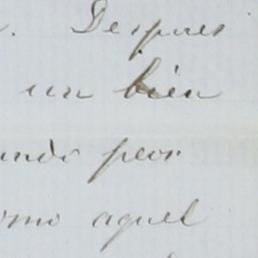 . Despues
un bien
ando peor
omo aquel